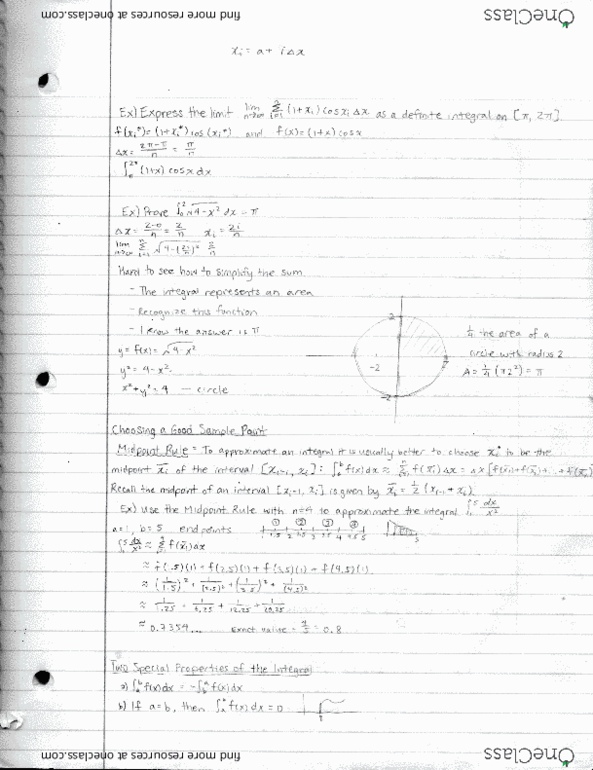 find more resources at oneclass.com
OneClass
xi = a + iΔx
Ex) Express the limit lim n→∞ Σ i=1 n (1+xi) cosxi Δx as a definite integral on [π, 2π]
f(xi*) = (1+xi*) cos(xi*) and f(x) = (1+x) cosx
Δx = 2π-π/n = π/n
(1+x) cosx dx
Ex) Prove ∫0 2 √4-x² dx = π
Δx = 2-0/n = 2/n xi = 2i/n
lim n→∞ Σ i=1 n √4-(2i/n)² 2/n
Hard to see how to simplify the sum.
- The integral represents an area
- Recognize this function
- I know the answer is π
y = f(x) = √4-x²
y² = 4-x²
x²+y² = 4 — circle
2
-2
-2
1/4 the area of a
circle with radius 2
A = 1/4 (π2²) = π
Choosing a Good Sample Point
Midpoint Rule = To approximate an integral it is usually better to choose xi* to be the
midpoint x̄i of the interval [xi-1, xi] : ∫a b f(x)dx ≈ Σ i=1 n f(x̄i) Δx = Δx [f(x̄1)+f(x̄2)+...+f(x̄n)]
Recall the midpoint of an interval [xi-1, xi] is given by x̄i = 1/2 (xi-1 + xi)
Ex) Use the Midpoint Rule with n=4 to approximate the integral ∫1 5 dx/x²
a=1, b=5 end points
① ② ③ ④
1 1.5 2 2.5 3 3.5 4 4.5 5
∫1 5 dx/x² ≈ Σ f(x̄i)Δx
≈ f(1.5)(1) + f(2.5)(1) + f(3.5)(1) + f(4.5)(1)
≈ 0.7354... exact value = 4/5 = 0.8
Two Special Properties of the Integral
a) ∫a b f(x)dx = -∫b a f(x)dx
b) If a=b, then ∫a a f(x) dx = 0
find more resources at oneclass.com
OneClass